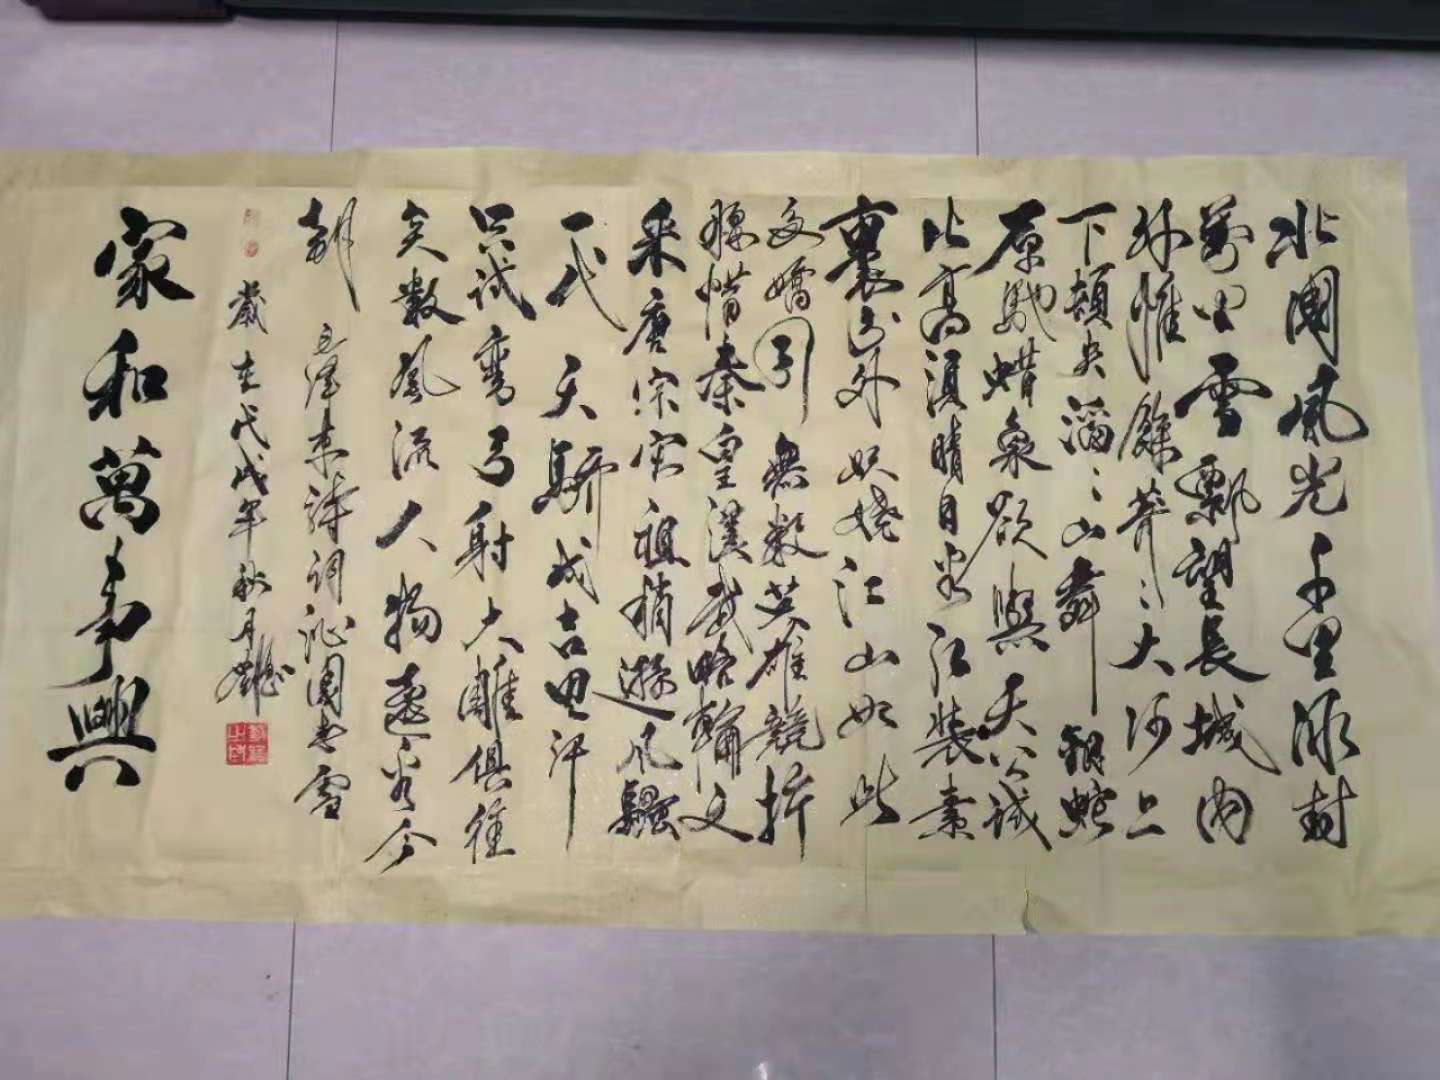 北國風光千里冰封
萬里雪飄望長城內
外惟餘莽〻大河上
下頓失滔〻山舞銀蛇
原馳蜡象欲與天公試
比高須晴日看紅裝素
裹分外妖嬈江山如此
多嬌引無數英雄競折
腰惜秦皇漢武略輸文
采唐宗宋祖稍遜風騷
一代天驕成吉思汗
只識彎弓射大雕俱往
矣數風流人物還看今
朝 毛澤東詩詞沁園春雪
歲在戊戌年秋月
家和萬事興